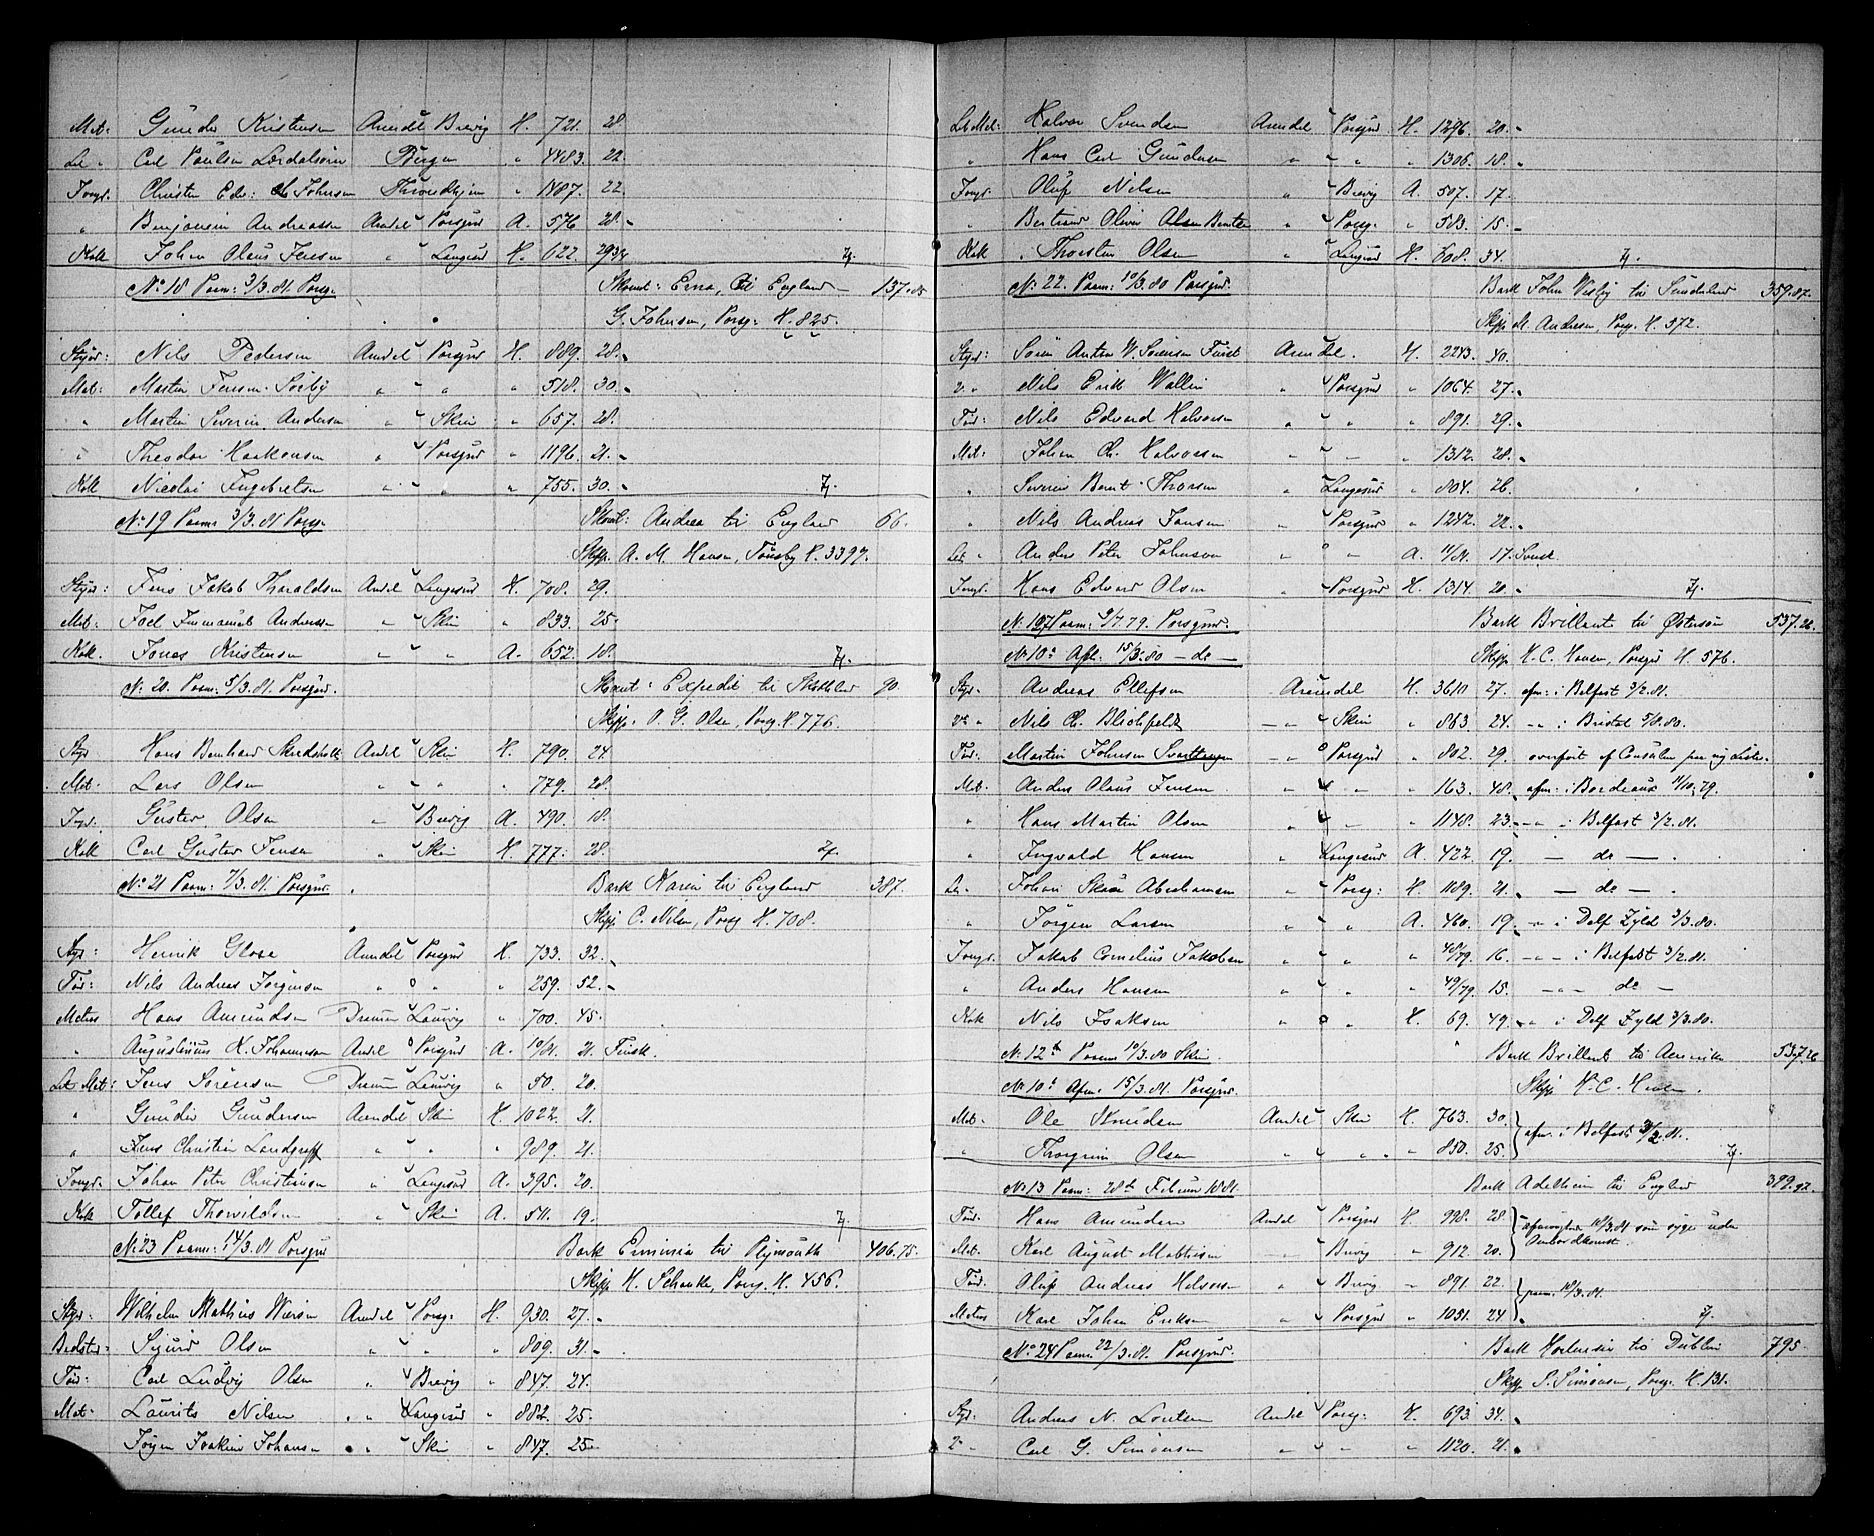 Mat: Gunder Kristensen Arendal Brevig H. 721. 28.
Let " Carl Paulsen Lærdalsøren Bergen " 4483. 22
Jongr. Christen Edv: Johnsen Throndhjem " 1487. 22.
" Benjamin Andreassen Arendal Porsgrd A. 576 28.
Kok Johan Olaus Jensen " Langesund H. 622. 29
No 18 Paam: 3/3.81. Porsg. Skonnt: Erna, til England 137.85
G. Johnsen, Porsg: H. 825.
Styrm: Nils Pedersen Arendal Porsgrd H. 889. 28.
Mat: Martin Jensen Soeby " " " 518. 30.
" Martin Severin Andersen " Skien " 657. 28.
" Theodor Haakonsen " Porsgrd " 1196. 21.
Kok Nicolai Ingebretsen " " " 755. 30.
No 19 Paam 3/3.81 Porsg. Skonnt: Andrea til England 66.
Skipp. A. M. Hansen, Tønsby H. 3397.
Styrm: Jens Jakob Tharaldsen Arendal Langesund H. 708. 29.
Mat: Joel Immanuel Anderssen " Skien " 833. 25.
Kok. Jonas Kristensen " " A. 652. 18.
No 20. Paam. 5/3.81. Porsgrd. Skonnt: Expedit til Skotland 90.
Skipp: O. G. Olsen, Porsg. H. 776.
Styr Hans Bernhard Arendal Skien H. 790. 24.
Mat: Lars Olsen " " " 779. 28.
Jngr. Gustav Olsen " Brevig A. 490. 18.
Kok Carl Gustav Jensen " Skien H. 777. 28.
No 21 Paam: 7/3.81. Porsgrd. Bark Maria til England 387.
Skipp C. Nilsen, Porsg H. 708.
Styr: Henrik Glose Arendal Porsgrd H. 733. 32.
Tør: Nils Andreas Jørgensen " " " 259. 52.
Matros Hans Amundsen Drammen Laurvig " 700. 45.
" Augustinus K. Johannesen Arendal Porsgrd A. 10/81. 21. Finsk.
Let Mat: Jens Sørensen Drammen Laurvig " 50. 20.
" Gunder Gundersen Arendal Skien H. 1022. 21.
" Jens Christian Landgraff " " " 989. 21.
Jongr. Johan Peter Christensen " Langesund A. 395. 20.
Kok Tollef Thorvildsen " Skien A. 511. 19.
No 23 Paam: 14/3.81 Porsgrd Bark Erminia til Plymouth 406.75.
Skipp H. Schanke, Porsg. H. 456.
Styr: Wilhelm Mathias Wiersen Arendal Porsg: H. 930. 27.
Bedstm: Sigurd Olsen " " " 809. 31.
Tør: Carl Ludvig Olsen " Brevig " 847. 24.
Mat: Laurits Nilsen " Langesund " 882. 25.
Jørgen Joakim Johansen " Skien " 847. 25.
Let Mat: Halvor Svendsen Arendal Porsgrd H. 1296. 20.
" Hans Carl Gundersen " " " 1306. 18.
Jongr. Oluf Nilsen " Brevig A. 507. 17.
" Bertrand Oliver Olsen Berntsen " Porsg. " 583. 15.
Kok Thorsten Olsen " Langesund H. 608. 34.
No 22. Paam: 10/3.80 Porsgrd. Bark John Wesley til Sunderland 359.87.
Skipp. M. Andresen, Porsg. H. 572.
Styr: Søren Anton W. Sørensen Fürst Arendal. H. 2243. 40.
2. " Nils Erik Wallin " Porsgrd " 1064. 27.
Tør: Nils Edvard Halvorsen " " " 891. 29.
Mat: Johan Ch. Halvorsen " " 1312. 28.
" Severin Bernt Thorsen " Langesund " 804. 26.
" Nils Andreas Jansen " Porsgrd " 1242. 22.
Let " Anders Peter Johnsen " " A. 11/81. 17. Svensk
Jongr. Hans Edvard Olsen " Porsgrd H. 1314. 20.
No 107 Paam: 9/7.79. Porsgrd. Bark Brillant til Østersøen 537.26.
No 10a Afl. 15/3.80 — do — Skipp. H. C. Hansen, Porsgrd H. 576.
Styr. Andreas Ellefsen Arendal H. 3610 27. afm: i Belfast 3/2.81.
2n " Nils Ch. Blichfeldt " Skien " 863. 24. " i Bristol 5/8.80.
Tør: Martin Johnsen " Porsgrd " 802. 29. overført af Consulen paa ny Liste.
Mat. Anders Olaus Jensen " " " 163. 48. afm: i Bordeaux 11/10.79.
" Hans Martin Olsen " " 1148. 23. " i Belfast 3/2.81.
" Ingvald Hansen " Langesund A. 422. 19. — do — .
Let. Johan Skaar Abrahamsen " Porsg: H. 1189. 21. — do — .
" Jørgen Larsen " " A. 460. 19. " i Delf Zyld 3/3.80.
Jongr. Jakob Cornelius Jakobsen " " " 48/79. 16. " i Belfast 3/2.81.
" Anders Hansen " " " 49/79. 15. " do —
Kok Nils Isaksen " " H. 69. 49. " i Delf Zyld 3/3.80.
No 12 b Paam 10/3.80 Skien. Bark Brillant til Amerika 537.26
No 10 b Afm. 15/3.81. Porsgrd. Skipp H. C. Hansen.
Mat. Ole Knudsen Arendal Skien H. 763. 30. afm. i Belfast 3/2.81.
" Thorgrim Olsen " " " 850. 25.
No 13 Paam: 28de Februar 1881. Bark Adelheim til England 399.92.
Tør. Hans Amundsen Arendal Porsgrd H. 998. 28 afmønstret 18/3.81 som syge uden
Mat. Karl August Mathisen " Brevig " 912. 20. Ombordkomst.
Tør. Oluf Andreas Halvorsen " Brevig " 891 22. paam. 18/3.81.
Matros Karl Johan Eriksen " Porsgrd " 1051. 24
No 24 Paam: 22/3.81. Porsgrd. Bark til Dublin 795
Skipp S. Simonsen, Porsg. H. 131.
Styr. Andreas N. Lantsen Arendal Porsg. H. 693. 34.
2 " Carl G. Simonsen " " " 1120. 21.